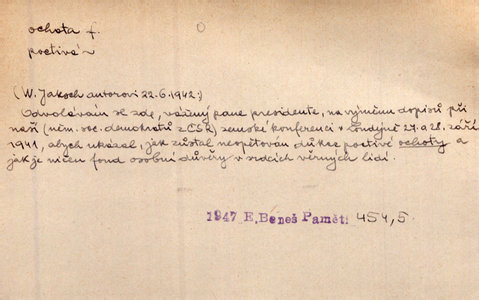 ochota f.
poctivá ~
(W. Jaksch autorovi 22.6.1942:)
Odvolávám se zde, vážený pane presidente, na výměnu dopisů při
naší (něm. soc. demokratů z ČSR) zemské konferenci v Londýně 27. a 28. září
1941, abych ukázal, jak zůstal neopětován důkaz poctivé ochoty a
jak je ničen fond osobní důvěry v srdcích věrných lidí.
1947 E. Beneš Paměti 454,5.